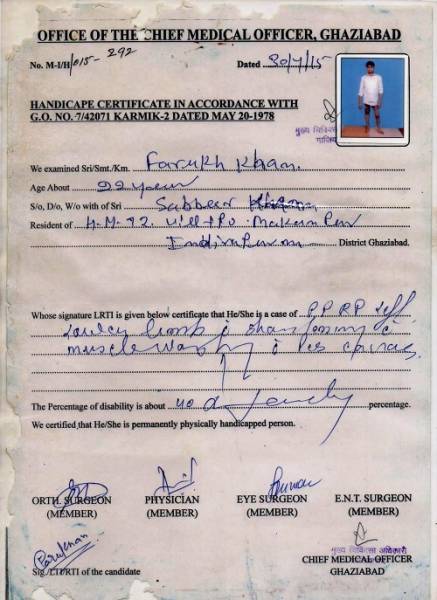 OFFICE OF THE CHIEF MEDICAL OFFICER, GHAZIABAD
No. M-I/H/015-292 Dated 30/7/15
HANDICAPE CERTIFICATE IN ACCORDANCE WITH
G.O. NO.-7/42071 KARMIK-2 DATED MAY 20-1978
मुख्य चिकित्सा
We examined Sri/Smt./Km. Farukh Khan.
Age About 22 year
S/o, D/o, W/o with of Sri Sabbeer Khan
Resident of H-N-92 Vill+Po- Makanpur
Indirapuram District Ghaziabad.
Whose signature LRTI is given below certificate that He/She is a case of PPRP Left
lower limb c shortening c
muscle wasting c
The Percentage of disability is about 40 percentage.
We certified that He/She is permanently physically handicapped person.
ORTH. SURGEON PHYSICIAN EYE SURGEON E.N.T. SURGEON
(MEMBER) (MEMBER) (MEMBER) (MEMBER)
Farukhan
मुख्य चिकित्सा अधिकारी
CHIEF MEDICAL OFFICER
Sig./LTI/RTI of the candidate GHAZIABAD